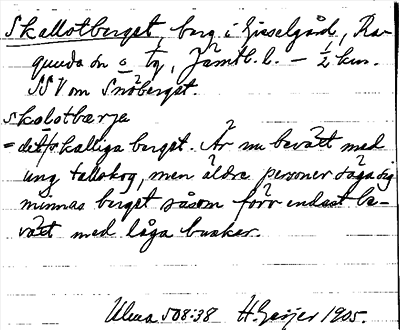 Skallotberget, berg i Gisselgård, Ra-
gunda sn o tg, Jämtl. l. – ½ km.
SSV om Snöberget.
skalotbærja
= det skalliga berget. Är nu beväxt med
ung tallskog, men äldre personer säga sig
minnas berget såsom förr endast be-
växt med låga buskar.
Ulma 508:38 H. Geijer 1905.